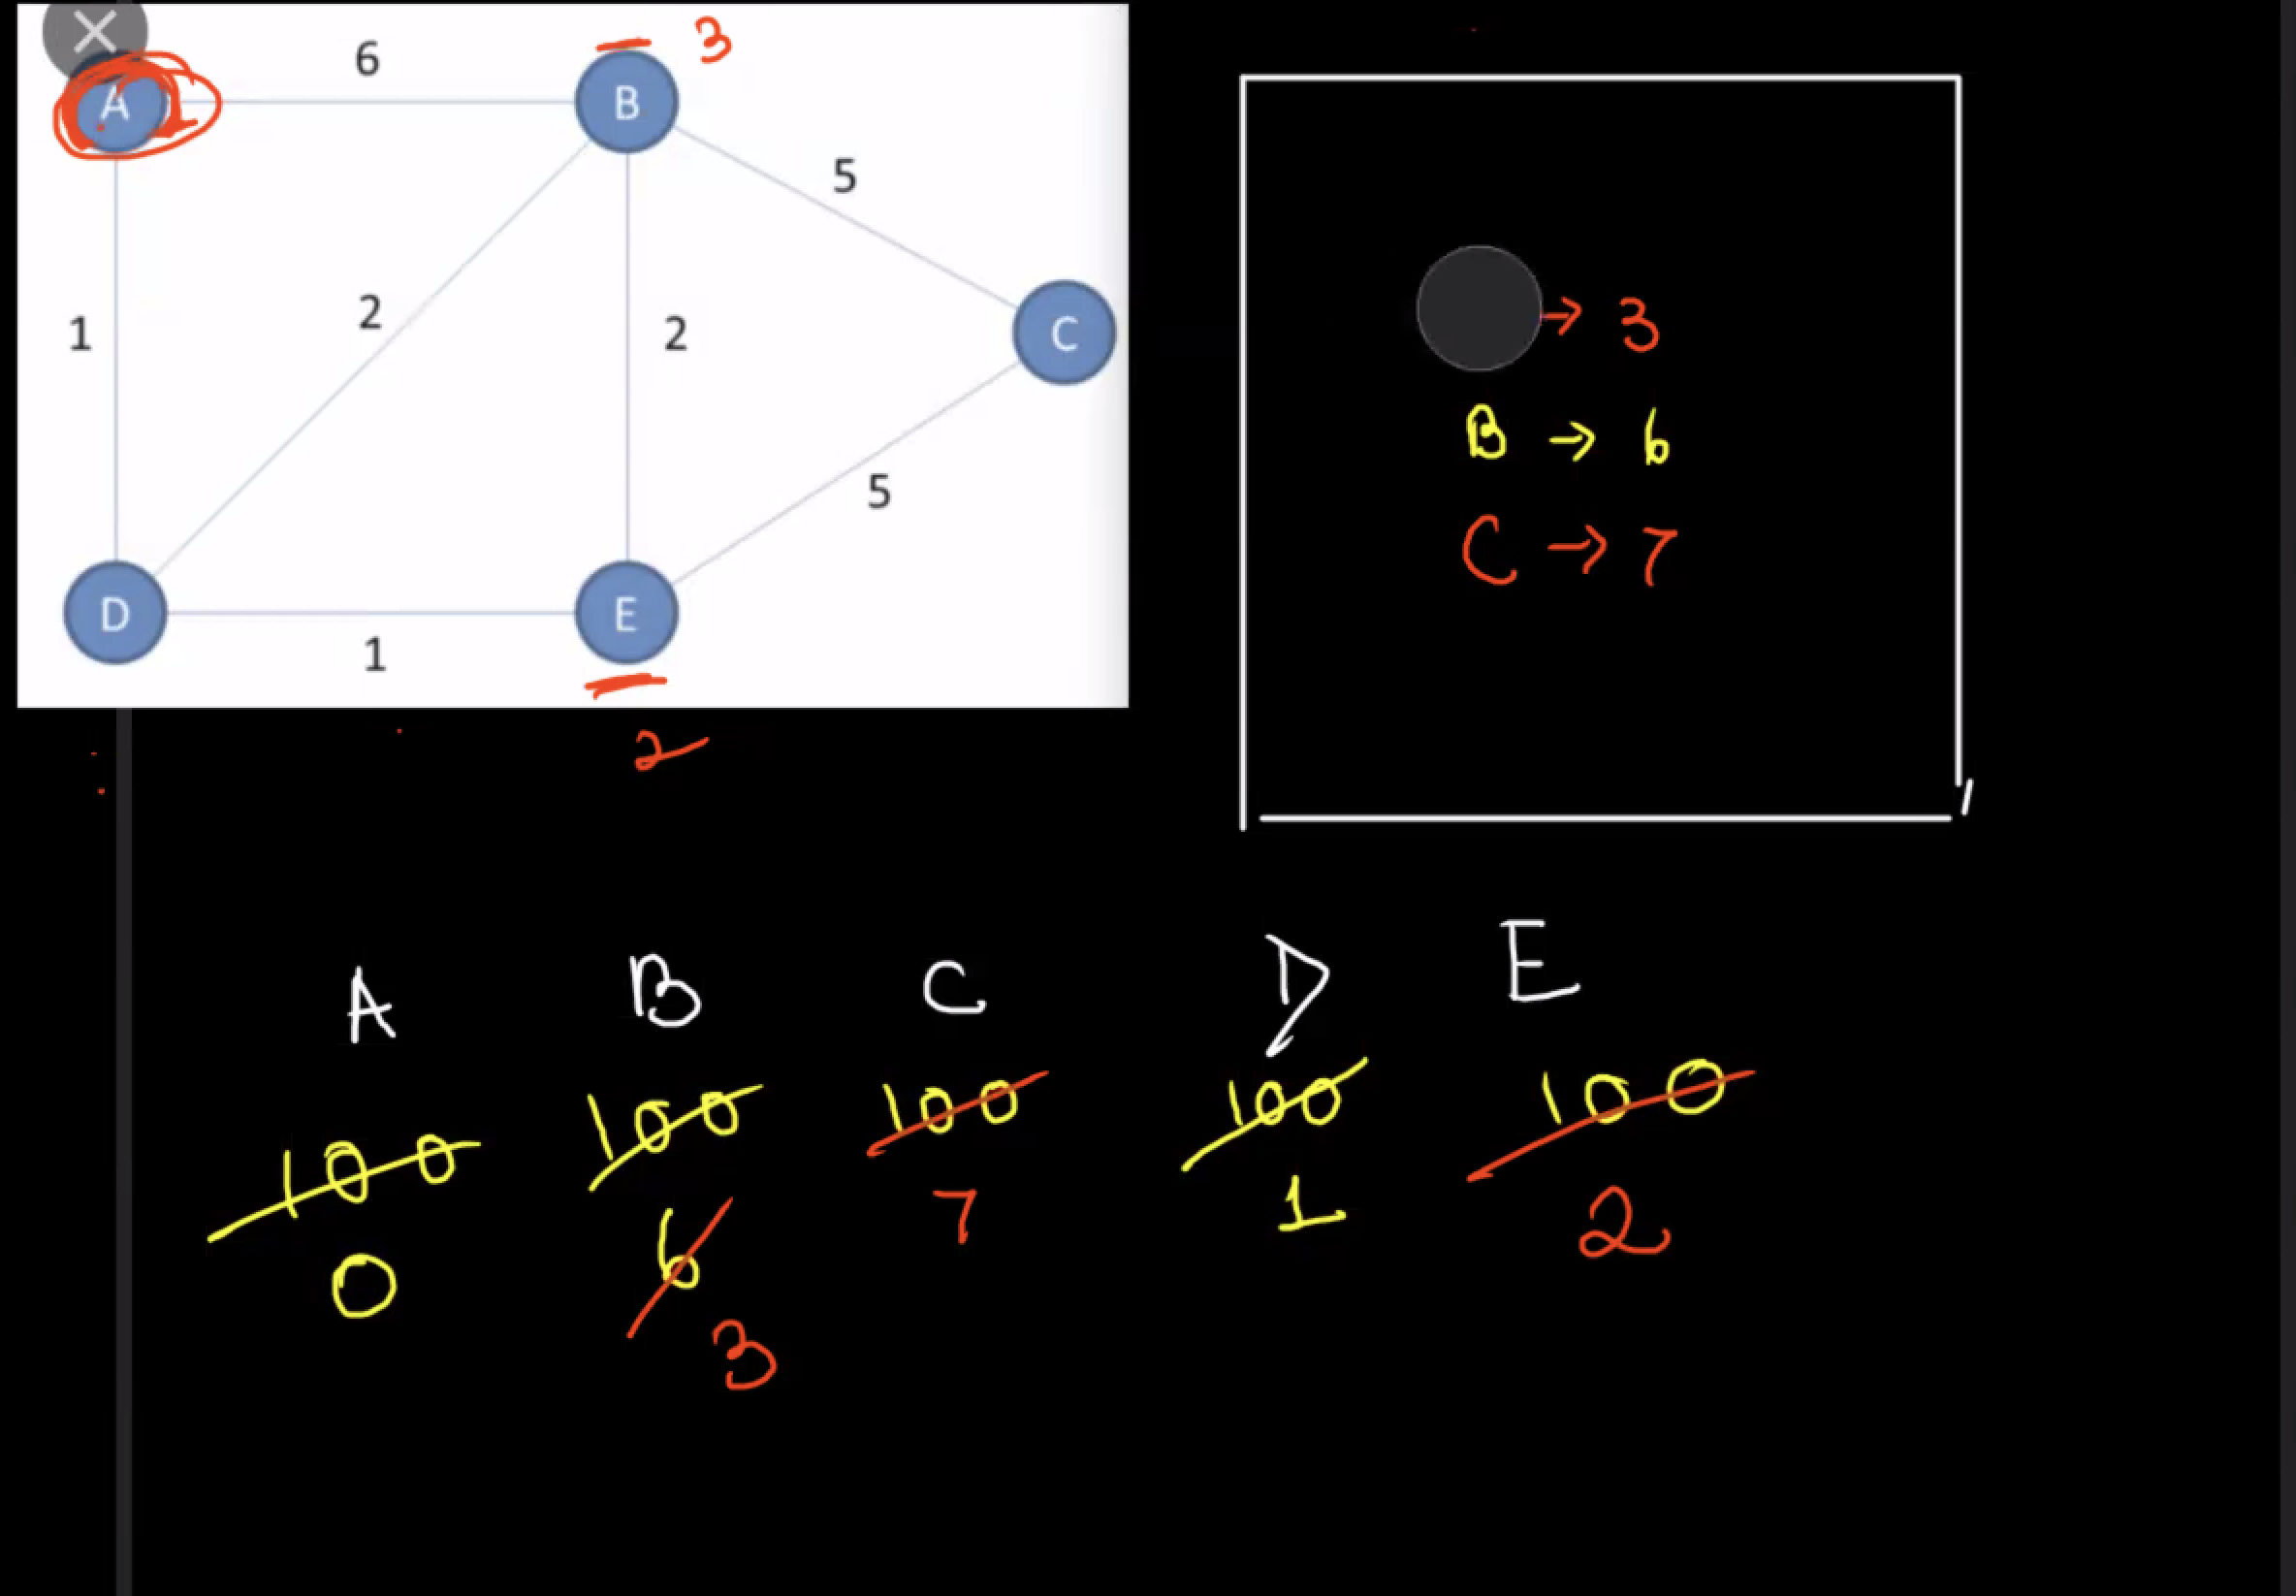 A 6 B 3
5
1 2 2 C
5
D 1 E
2
→ 3
B → 6
C → 7
A B C D E
100 100 100 100 100
0 6 7 1 2
3